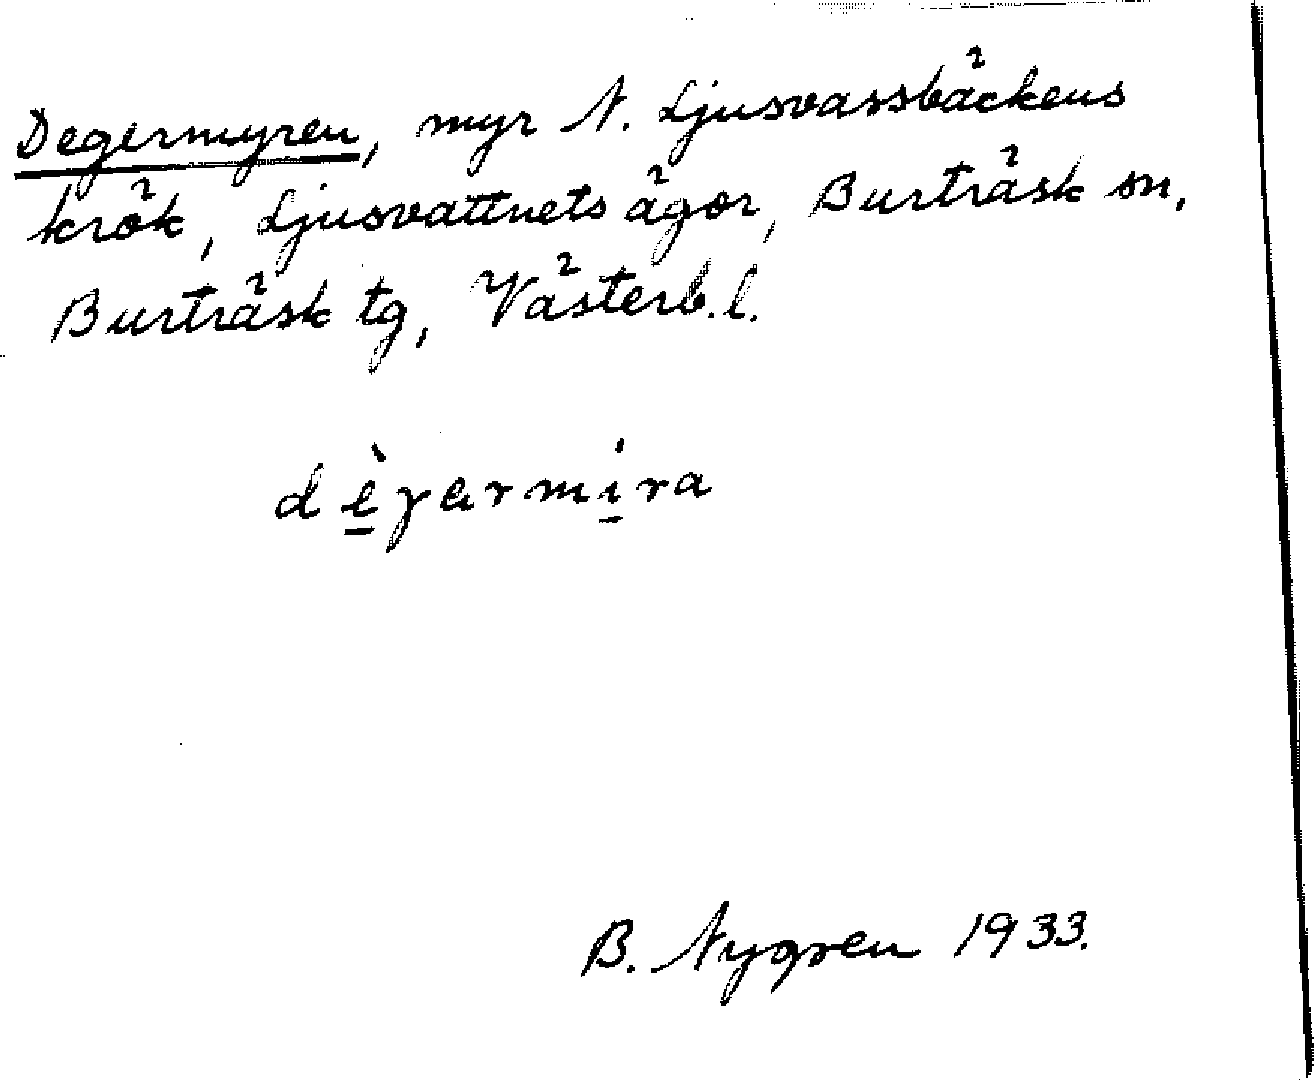 Degermyren, myr N. Ljusvassbäckens
krök, Ljusvattnets ägor, Burträsk sn,
Burträsk tg, Västerb. l.
dè̱γərmi̱ra
B. Nygren 1933.